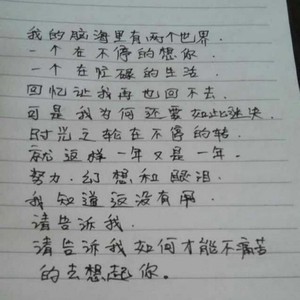 我的脑海里有两个世界.
一个在不停的想你.
一个在忙碌的生活.
回忆让我再也回不去.
可是我为何还要如此迷决
时光之轮在不停的转.
就这样一年又是一年.
努力.幻想和眼泪.
我知道这没有用
请告诉我.
请告诉我如何才能不痛苦
的去想起你。